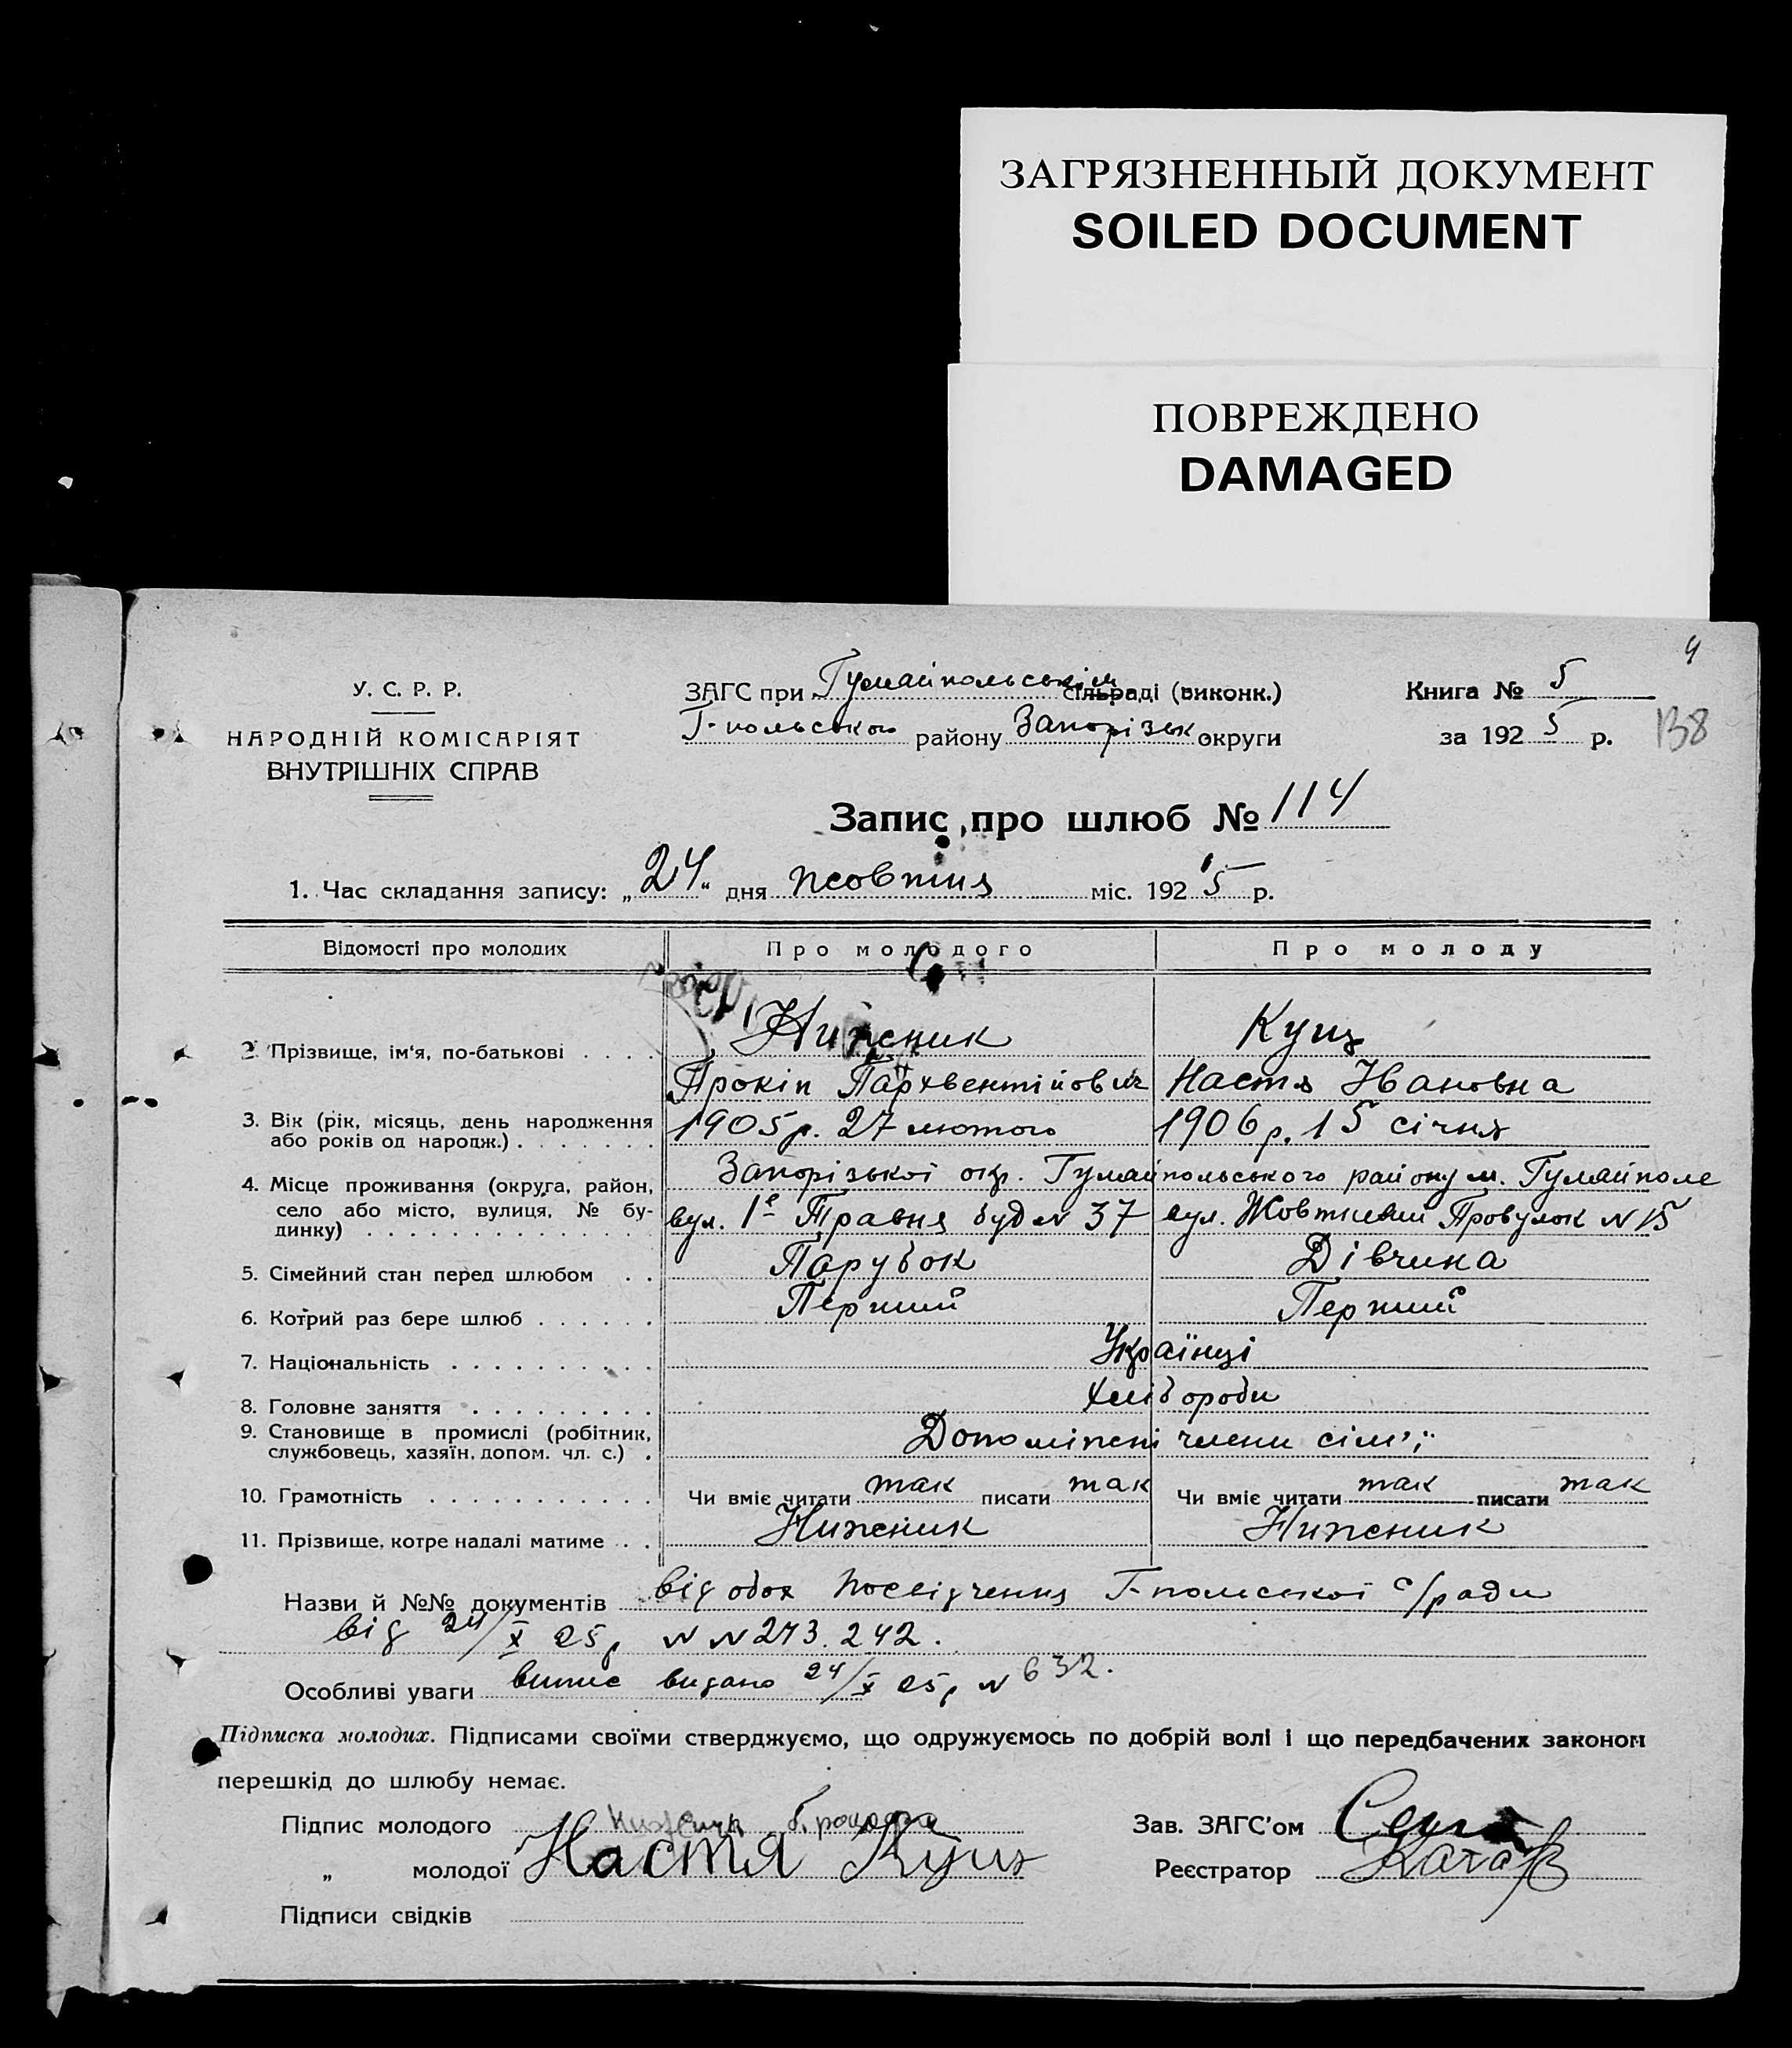 ЗАГРЯЗНЕННЫЙ ДОКУМЕНТ
SOILED DOCUMENT
ПОВРЕЖДЕНО
DAMAGED
4
У. С. Р. Р.
НАРОДНІЙ КОМІСАРІЯТ
ВНУТРІШНІХ СПРАВ
ЗАГС при Гуляйпольськім сільраді (виконк.)
Г-польського району Запорізьк округи
Книга № 5
за 1925 р.
138
Запис про шлюб № 114
1. Час складання запису: „24" дня жовтня міс. 1925 р.
Відомості про молодих Про молодого Про молоду
2. Прізвище, ім'я, по-батькові . . . . Нижник Кущ
Прокіп Пархвентійович Настя Ивановна
3. Вік (рік, місяць, день народження або років од народж.) . . . . . . . 1905 р. 27 лютого 1906 р. 15 січня
4. Місце проживання (округа, район, село або місто, вулиця, № будинку) . . . . . . . . . . . . . .
Запорізької окр. Гуляйпольського району м. Гуляйполе
вул. 1е Травня буд N 37 вул. Жовтневий Провулок N 15
5. Сімейний стан перед шлюбом . . Парубок Дівчина
6. Котрий раз бере шлюб . . . . . . Перший Перший
7. Національність . . . . . . . . . . Українці
8. Головне заняття . . . . . . . . . Хлібороби
9. Становище в промислі (робітник, службовець, хазяїн, допом. чл. с.) . Допоміжні члени сім'ї
10. Грамотність . . . . . . . . . . . Чи вміє читати так писати так Чи вміє читати так писати так
11. Прізвище, котре надалі матиме . . Нижник Нижник
Назви й №№ документів від обох Посвідчення Г-польської с/ради
від 24/X 25 р N N 243. 242.
Особливі уваги випис видано 24/X 25 р N 632.
Підписка молодих. Підписами своїми стверджуємо, що одружуємось по добрій волі і що передбачених законом
перешкід до шлюбу немає.
Підпис молодого Зав. ЗАГС'ом
„ молодої Настя Кущ Реєстратор
Підписи свідків